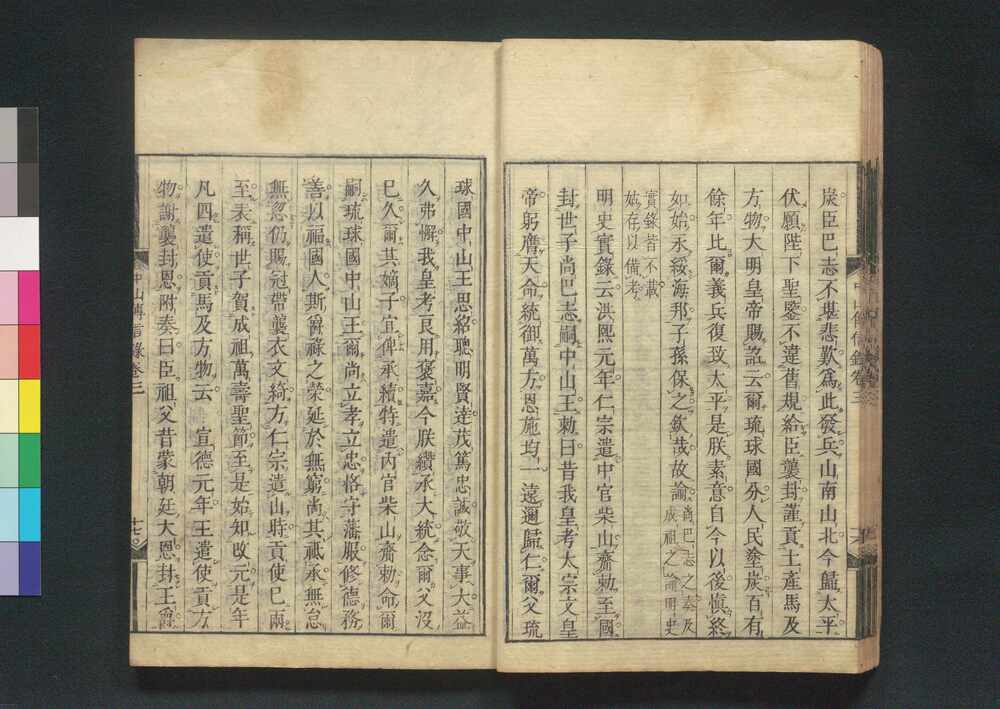 炭臣巴志不堪悲歎爲此發兵山南山北今歸太平
伏願陛下聖鑒不違舊規給臣襲封謹貢土產馬及
方物大明皇帝賜詔云爾琉球國分人民塗炭百有
餘年比爾義兵復致太平是朕素意自今以後愼終
如始永綏海邦子孫保之欽哉故諭尚巴志之奏及成祖之諭明史
實錄皆不載姑存以備考
明史實錄云洪熙元年仁宗遣中官柴山齎勅至國
封世子尚巴志嗣中山王勅曰昔我皇考太宗文皇
帝躬膺天命統御萬方恩施均一遠邇歸仁爾父琉
球國中山王思紹聰明賢達茂篤忠誠敬天事大益
久弗懈我皇考良用褒嘉今朕纘承大統念爾父沒
已久爾其嫡子宜俾承續特遣內官柴山齎勅命爾
嗣琉球國中山王爾尚立孝立忠恪守藩服修德務
善以福國人斯爵祿之榮延於無窮尚其祗承無怠
無忽仍賜冠帶襲衣文綺方仁宗遣山時貢使已兩
至表稱世子賀成祖萬壽聖節至是始知改元是年
凡四遣使貢馬及方物云 宣德元年王遣使貢方
物謝襲封恩附奏曰臣祖父昔蒙朝廷大恩封王爵
中山傳信錄卷三
十七